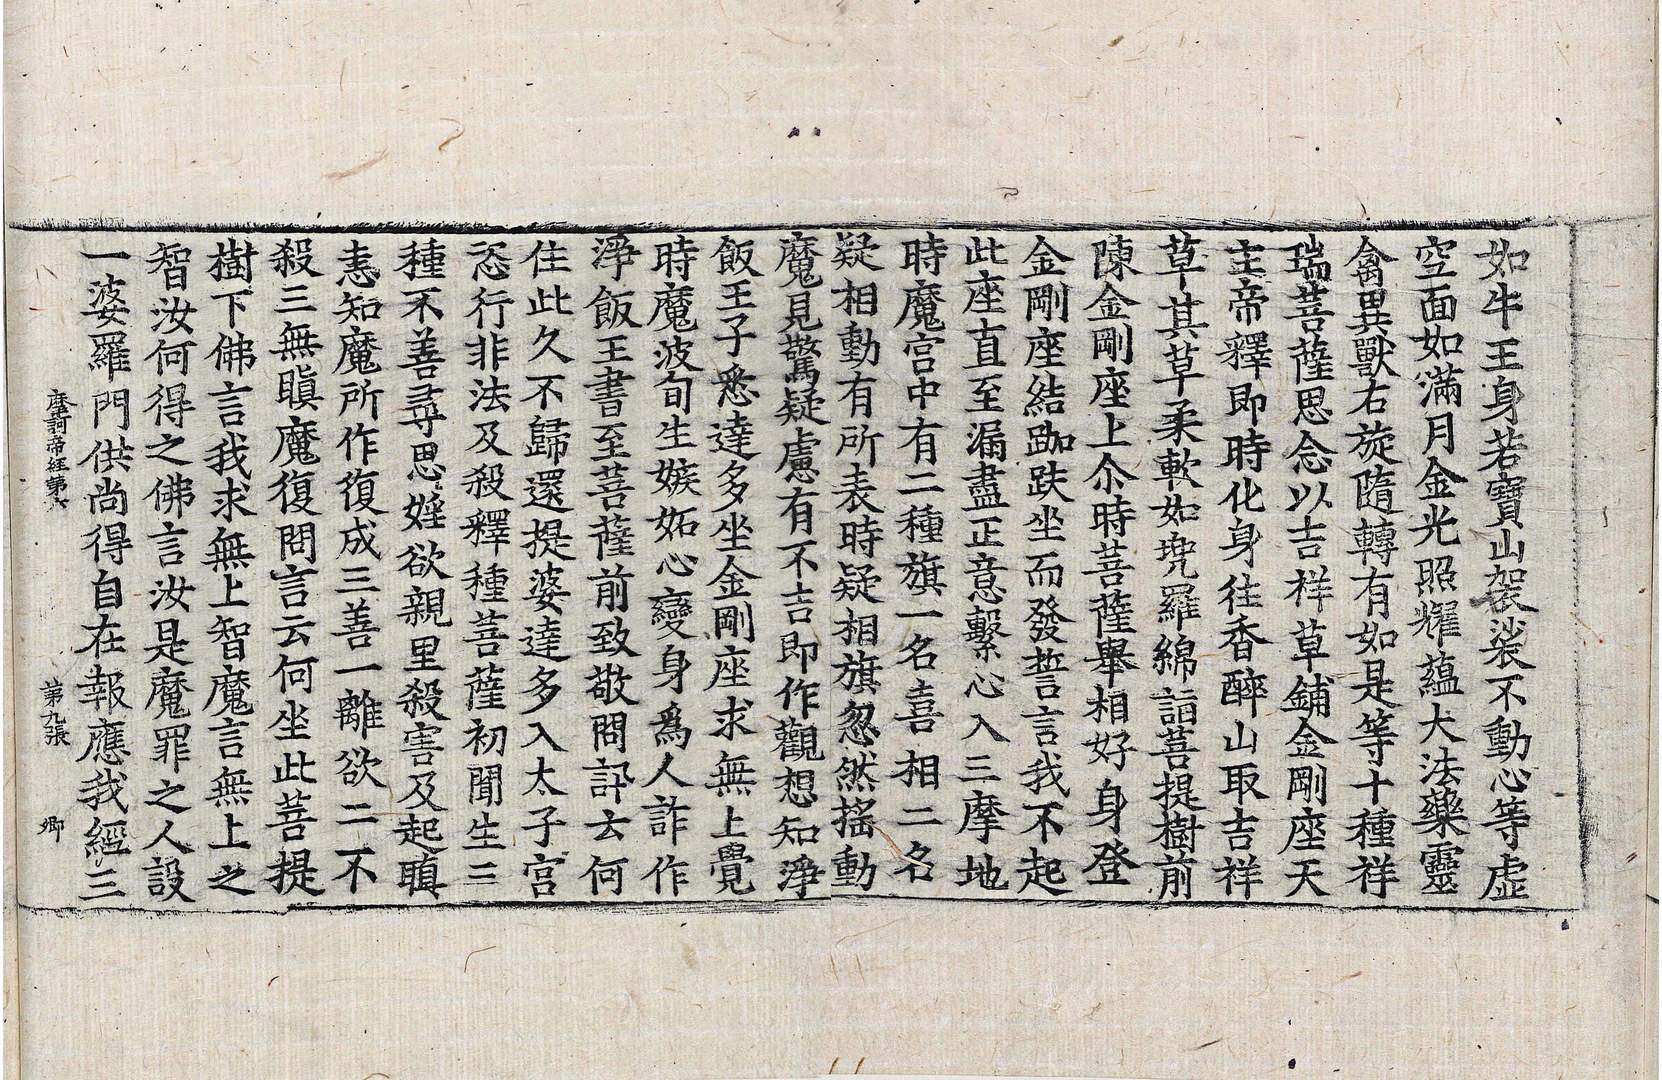 如牛王身若寶山袈裟不動心等虛
空面如滿月金光照耀蘊大法藥靈
禽異獸右旋隨轉有如是等十種祥
瑞菩薩思念以吉祥草鋪金剛座天
主帝釋即時化身往香醉山取吉祥
草其草柔軟如兜羅綿詣菩提樹前
陳金剛座上尒時菩薩舉相好身登
金剛座結跏趺坐而發誓言我不起
此座直至漏盡正意繫心入三摩地
時魔宮中有二種旗一名喜相二名
疑相動有所表時疑相旗忽然搖動
魔見驚疑慮有不吉即作觀想知淨
飯王子悉達多坐金剛座求無上覺
時魔波旬生嫉妬心變身爲人詐作
淨飯王書至菩薩前致敬問訊云何
住此久不歸還提婆達多入太子宮
恣行非法及殺釋種菩薩初聞生三
種不善尋思婬欲親里殺害及起瞋
恚知魔所作復成三善一離欲二不
殺三無瞋魔復問言云何坐此菩提
樹下佛言我求無上智魔言無上之
智汝何得之佛言汝是魔罪之人設
一婆羅門供尚得自在報應我經三
摩訶帝經第六　第九張　卿